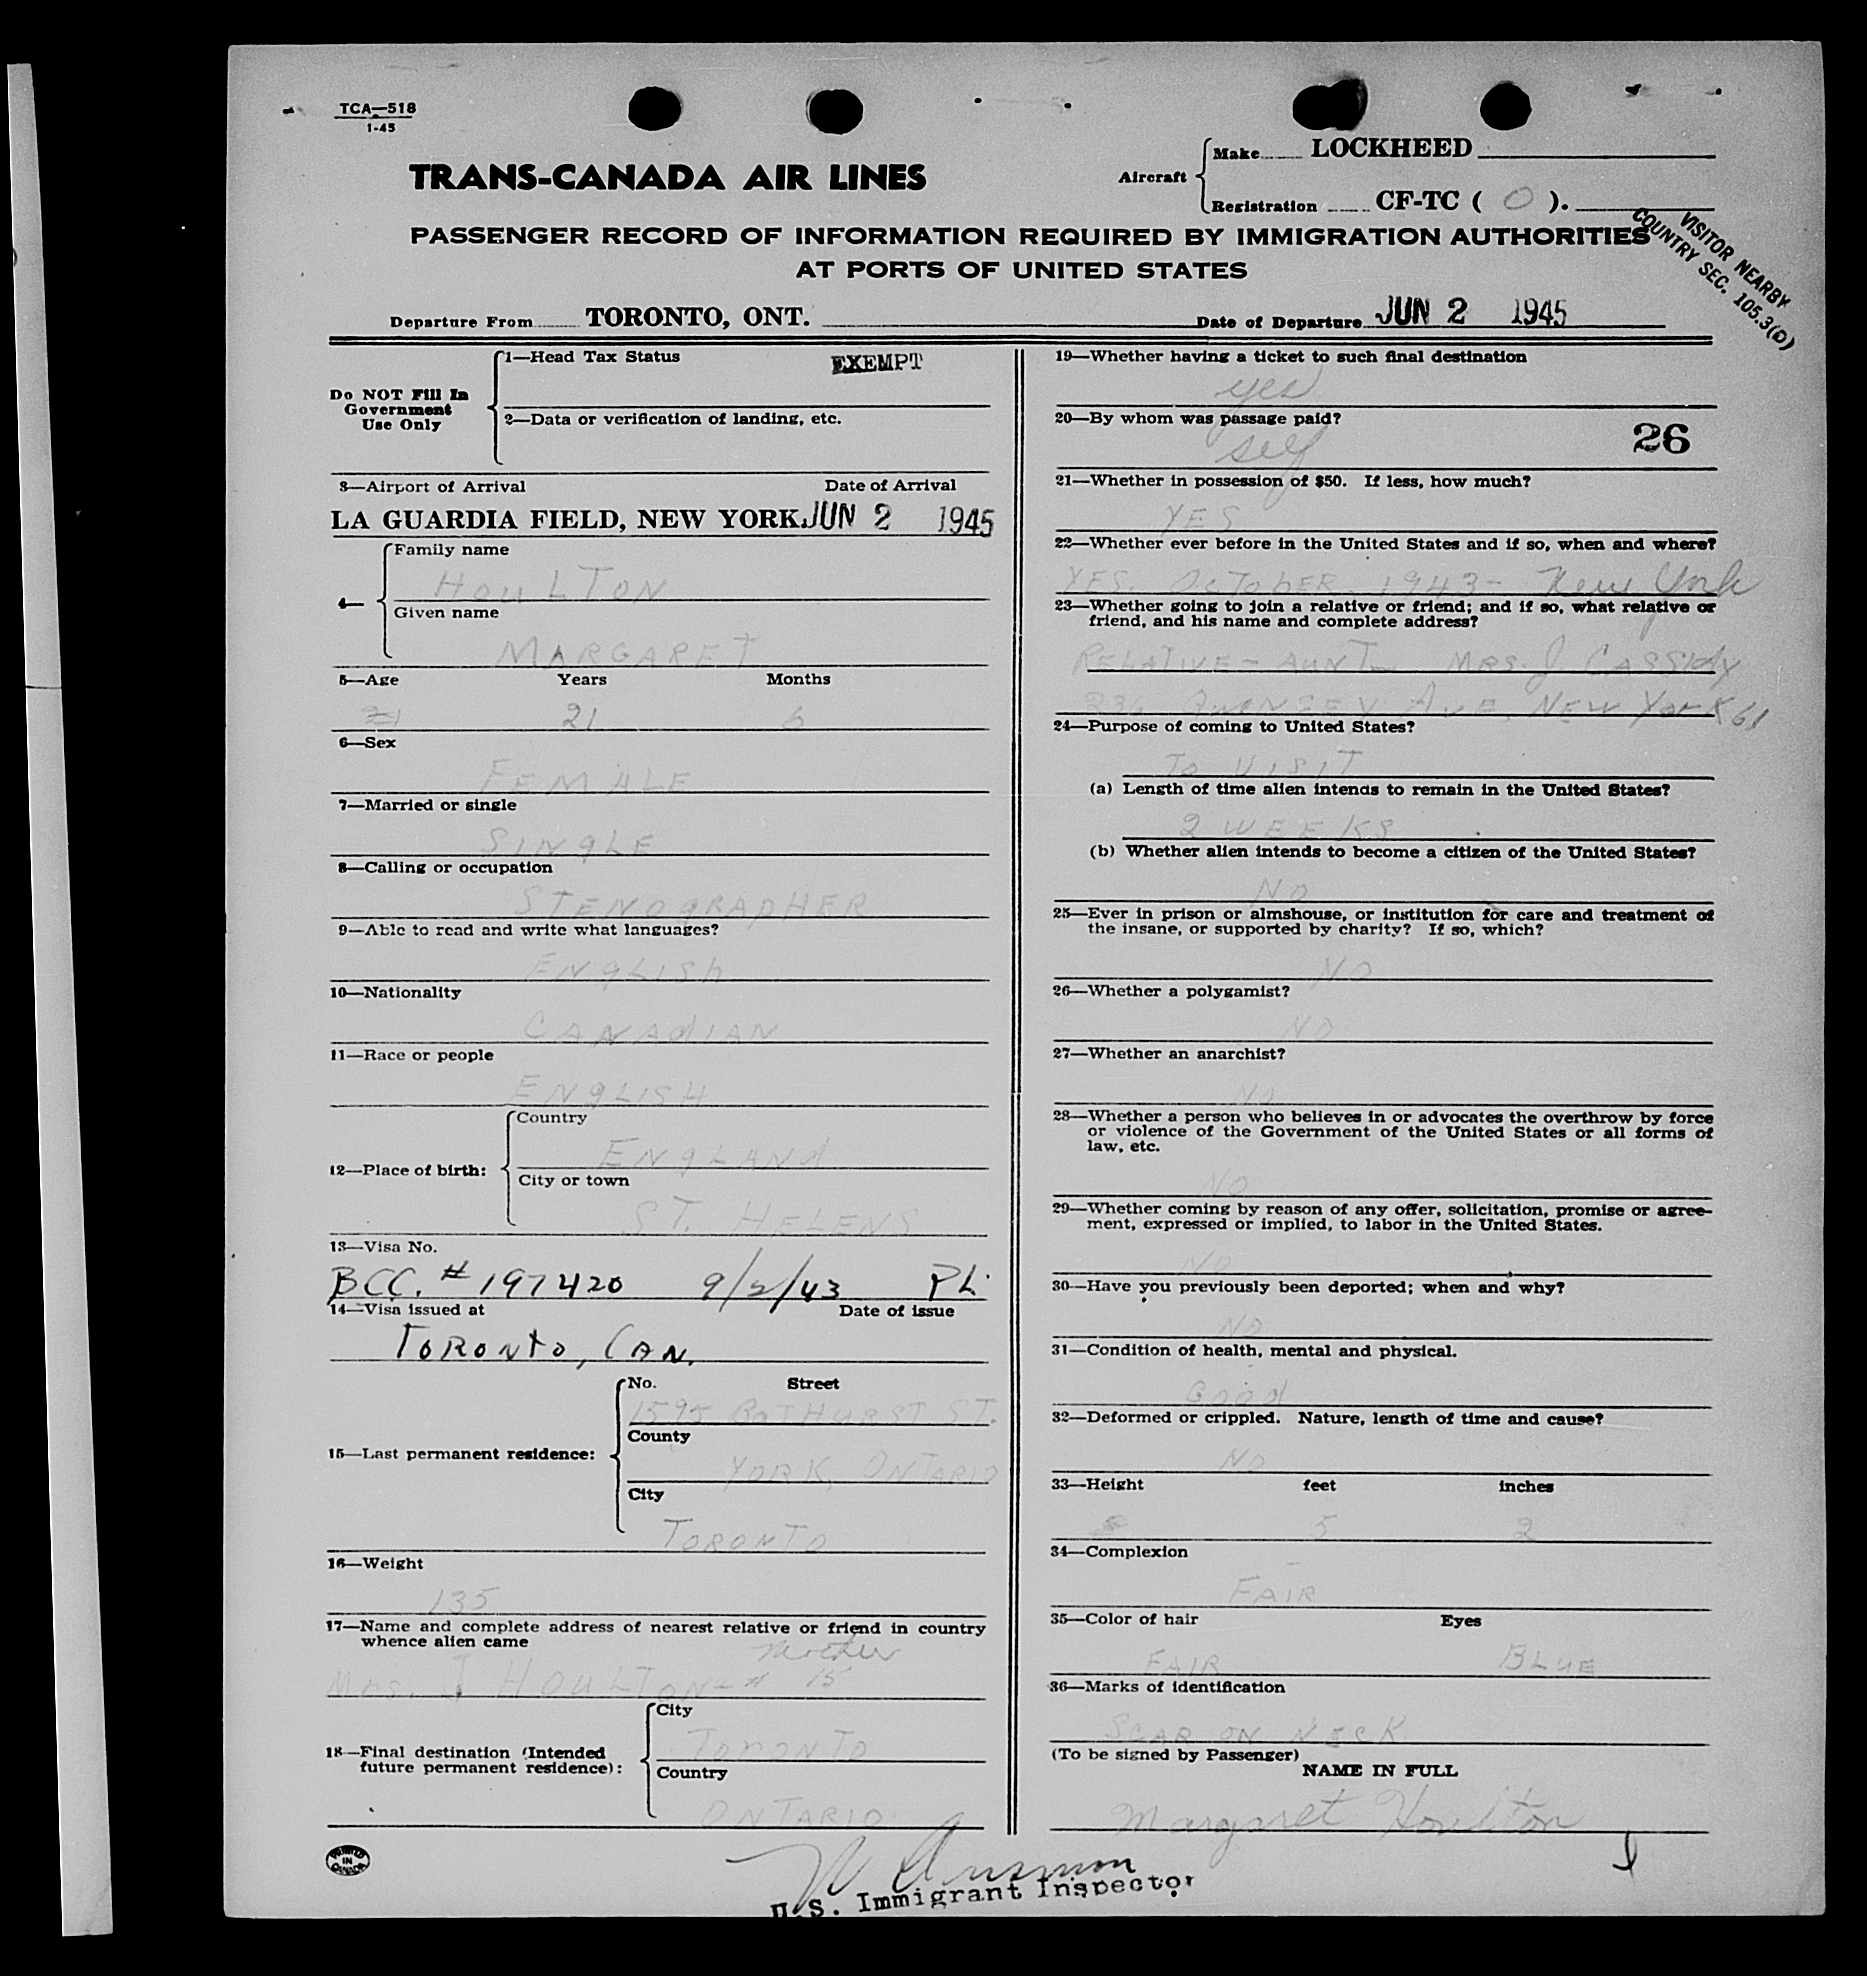 TCA—518
1-45
TRANS-CANADA AIR LINES
Aircraft
Make LOCKHEED
Registration CF-TC ( O ).
VISITOR NEARBY
COUNTRY SEC. 105.3(D)
PASSENGER RECORD OF INFORMATION REQUIRED BY IMMIGRATION AUTHORITIES
AT PORTS OF UNITED STATES
Departure From TORONTO, ONT. Date of Departure JUN 2 1945
Do NOT Fill In
Government
Use Only
1—Head Tax Status EXEMPT
2—Data or verification of landing, etc.
3—Airport of Arrival Date of Arrival
LA GUARDIA FIELD, NEW YORK. JUN 2 1945
4—
Family name
HOULTON
Given name
MARGARET
5—Age Years Months
21 21 6
6—Sex
FEMALE
7—Married or single
SINGLE
8—Calling or occupation
STENOGRAPHER
9—Able to read and write what languages?
ENGLISH
10—Nationality
CANADIAN
11—Race or people
ENGLISH
12—Place of birth:
Country
ENGLAND
City or town
ST. HELENS
13—Visa No.
BCC. # 197420 9/2/43 PL.
14—Visa issued at Date of issue
TORONTO, CAN.
15—Last permanent residence:
No. Street
1595 BATHURST ST.
County
YORK, ONTARIO
City
TORONTO
16—Weight
135
17—Name and complete address of nearest relative or friend in country
whence alien came
mother
MRS. J HOULTON - # 15
18—Final destination (Intended
future permanent residence):
City
TORONTO
Country
ONTARIO
PRINTED
IN
CANADA
19—Whether having a ticket to such final destination
yes
20—By whom was passage paid?
self
26
21—Whether in possession of $50. If less, how much?
YES
22—Whether ever before in the United States and if so, when and where?
YES. OCTOBER, 1943 - New York
23—Whether going to join a relative or friend; and if so, what relative or
friend, and his name and complete address?
RELATIVE - AUNT - MRS. J CASSIDY
AVE, NEW YORK 61
24—Purpose of coming to United States?
TO VISIT
(a) Length of time alien intends to remain in the United States?
2 WEEKS
(b) Whether alien intends to become a citizen of the United States?
NO
25—Ever in prison or almshouse, or institution for care and treatment of
the insane, or supported by charity? If so, which?
NO
26—Whether a polygamist?
NO
27—Whether an anarchist?
NO
28—Whether a person who believes in or advocates the overthrow by force
or violence of the Government of the United States or all forms of
law, etc.
NO
29—Whether coming by reason of any offer, solicitation, promise or agree-
ment, expressed or implied, to labor in the United States.
NO
30—Have you previously been deported; when and why?
NO
31—Condition of health, mental and physical.
GOOD
32—Deformed or crippled. Nature, length of time and cause?
NO
33—Height feet inches
5 2
34—Complexion
FAIR
35—Color of hair Eyes
FAIR BLUE
36—Marks of identification
SCAR ON NECK
(To be signed by Passenger)
NAME IN FULL
Margaret Houlton
U.S. Immigrant Inspector